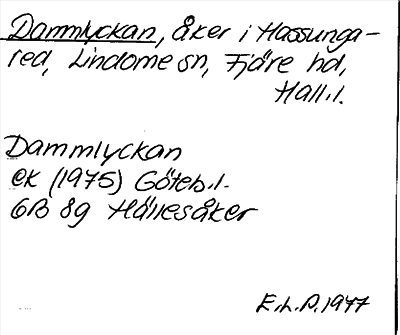 Dammlyckan, åker i Hassunga-
red, Lindome sn, Fjäre hd,
Hall.l.
Dammlyckan
ek (1975) Göteb.l.
6B 8g Hällesåker
E.L.P. 1977